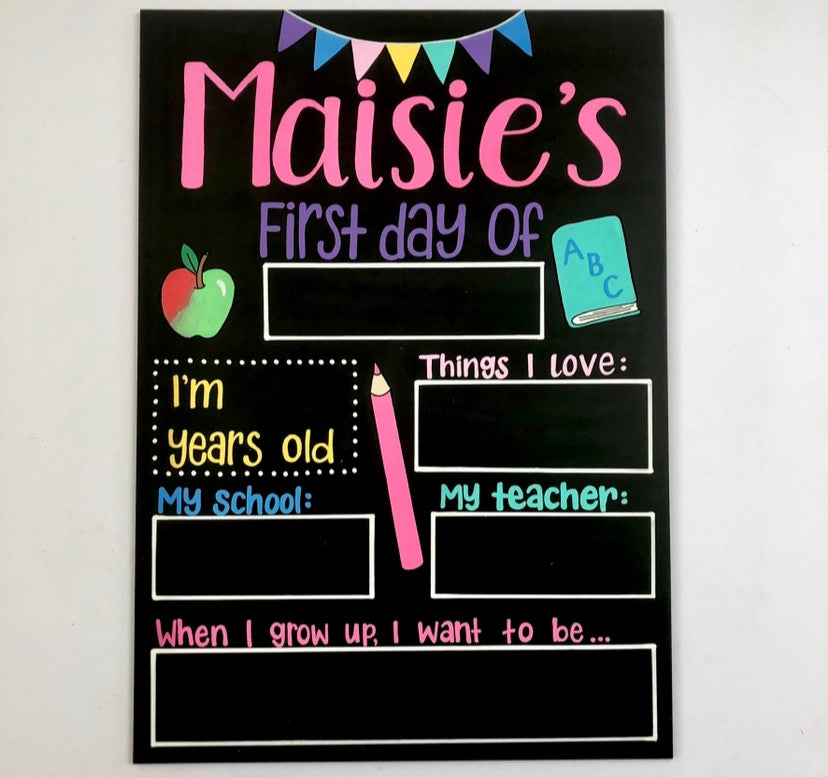 Maisie's
First day Of
A
B
C
I'm
years old
Things I love:
My school:
My teacher:
When I grow up, I want to be...